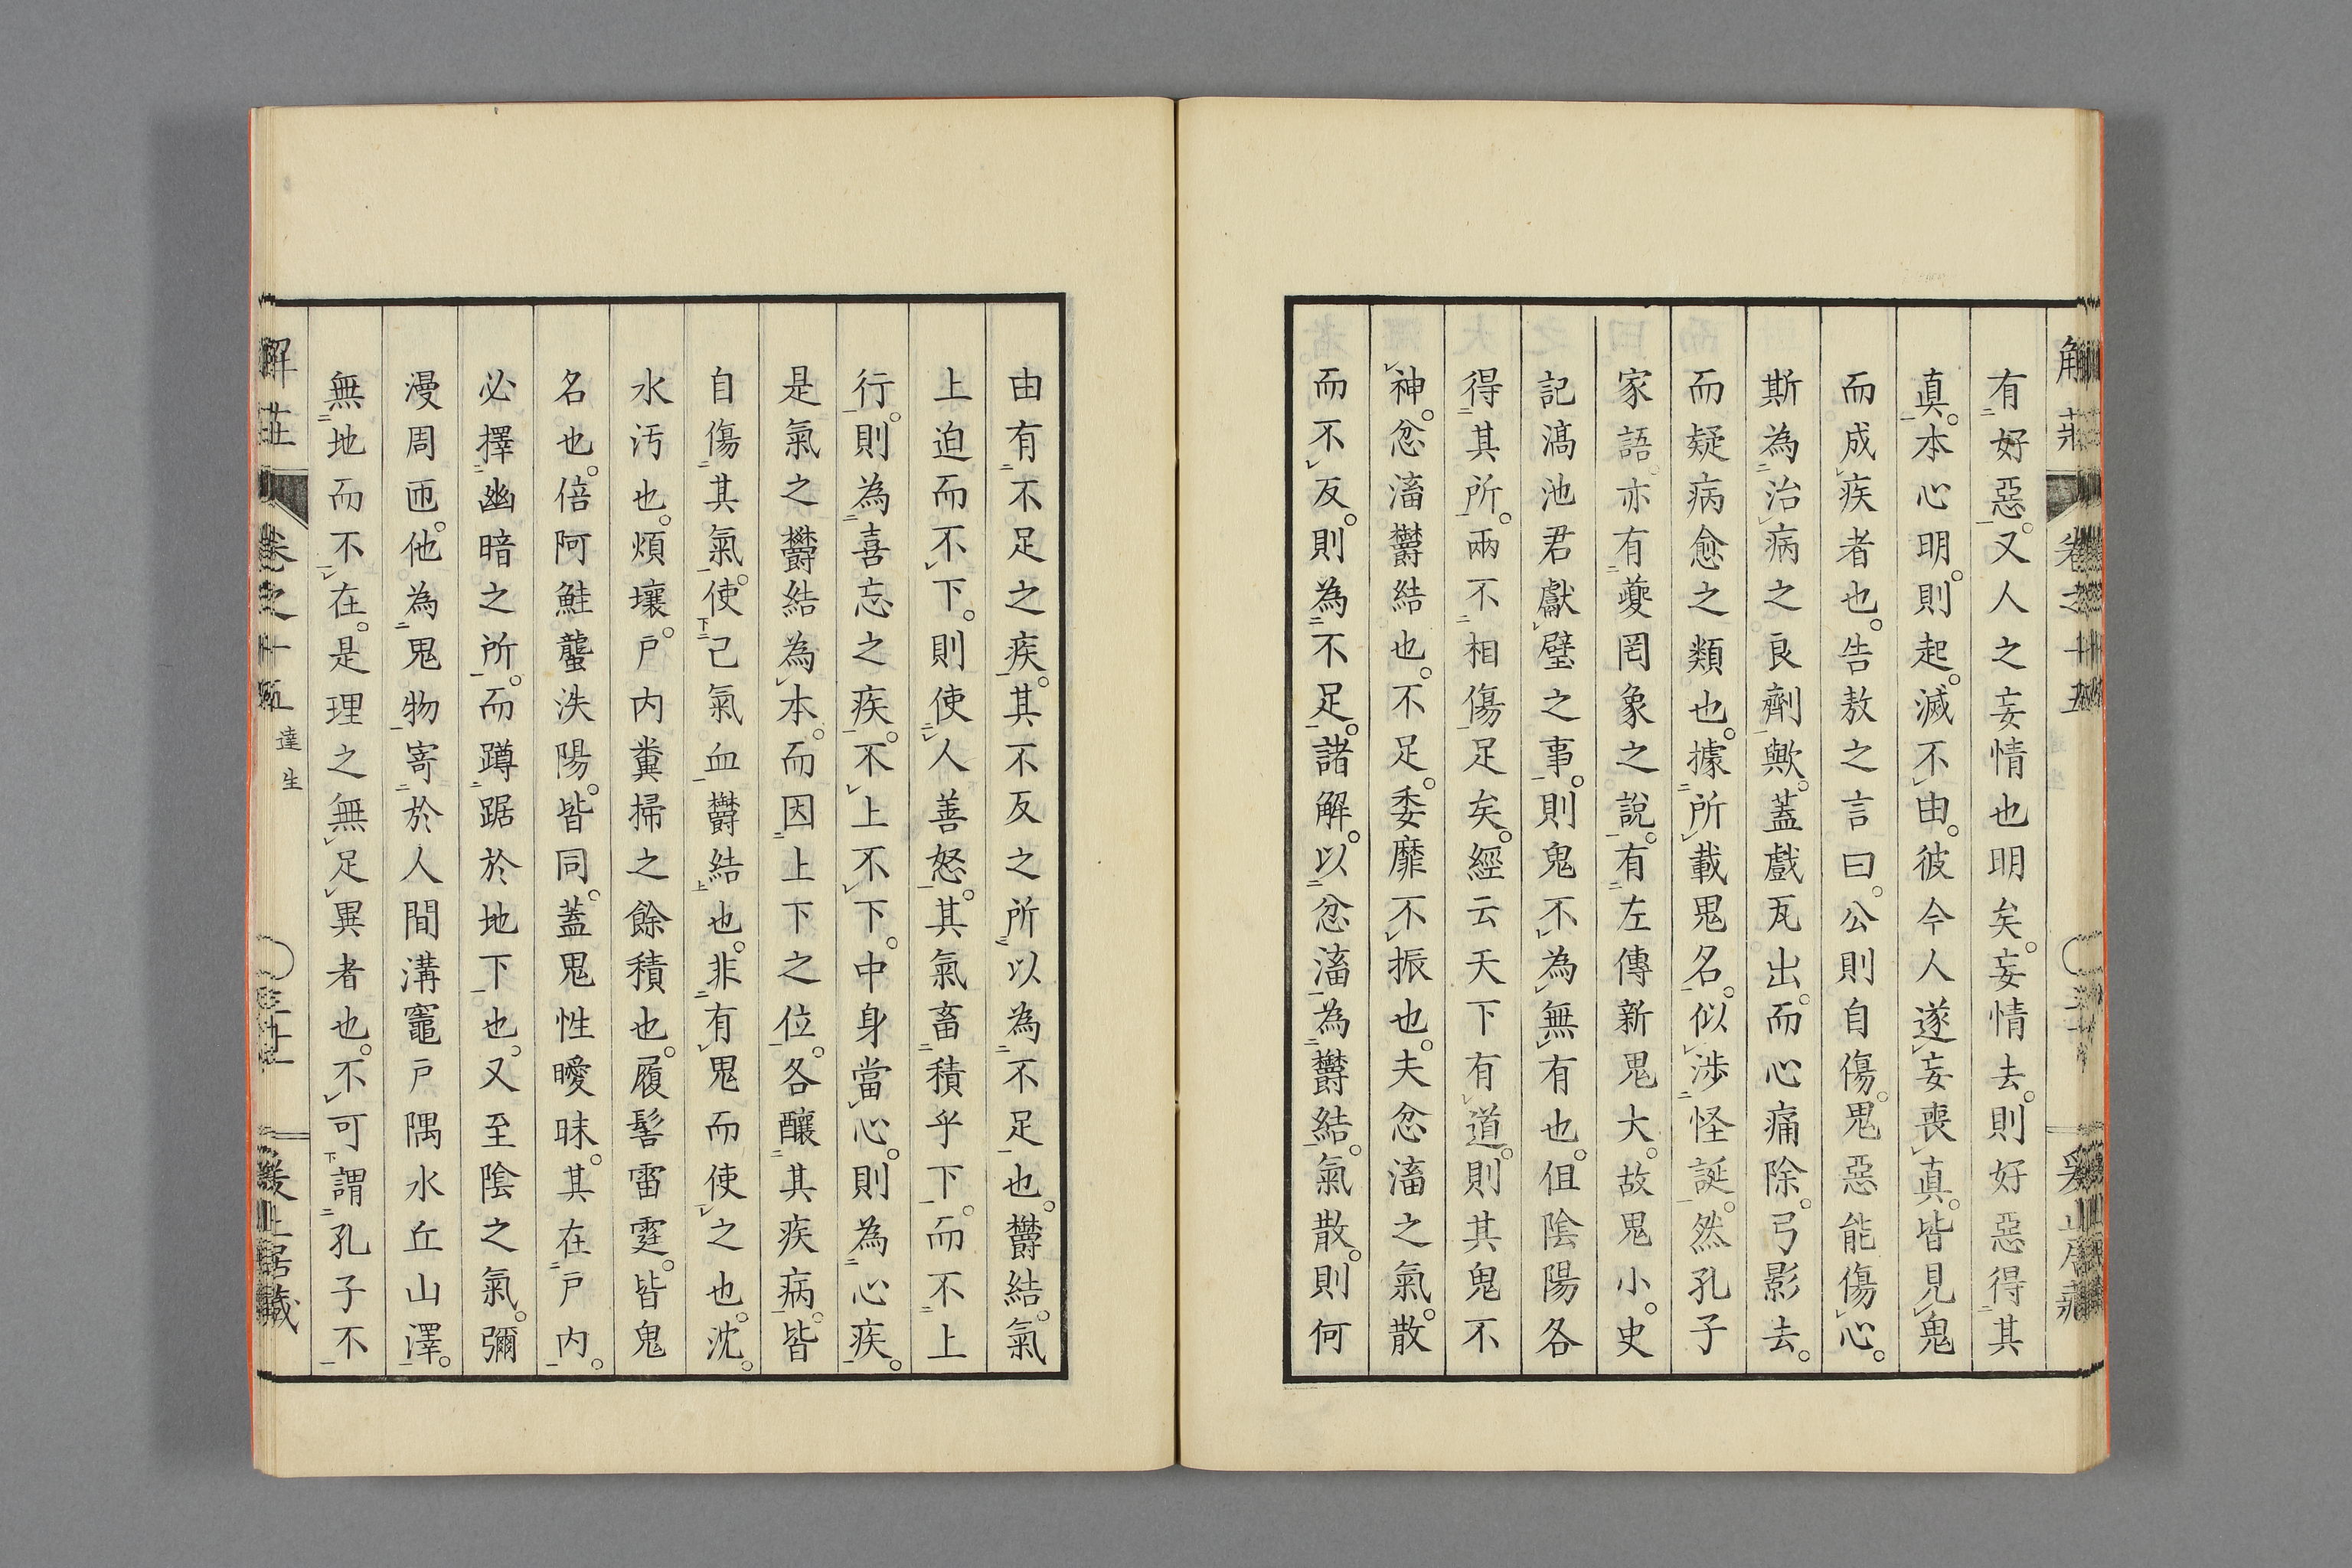 有好惡。又人之妄情也明矣。妄情去。則好惡得其
真。本心明。則起。滅不由。彼今人遂妄喪真。皆見鬼
而成疾者也。告敖之言曰。公則自傷。鬼惡能傷心。
斯為治病之良劑歟。蓋戲瓦出。而心痛除。弓影去。
而疑病愈之類也。據所載鬼名。似涉怪誕。然孔子
家語。亦有夔罔象之說。有左傳新鬼大。故鬼小。史
記滈池君獻璧之事。則鬼不為無有也。伹陰陽各
得其所。兩不相傷足矣。經云天下有道。則其鬼不
神。忿滀欝結也。不足。委靡不振也。夫忿滀之氣。散
而不反。則為不足。諸解。以忿滀為欝結。氣散。則何
由有不足之疾。其不反之所以為不足也。欝結。氣
上迫而不下。則使人善怒。其氣畜積乎下。而不上
行。則為喜忘之疾。不上不下。中身當心。則為心疾。
是氣之欝結為本。而因上下之位。各釀其疾病。皆
自傷其氣。使己氣血欝結也。非有鬼而使之也。沈。
水汚也。煩壤。戶內糞掃之餘積也。履髻雷霆。皆鬼
名也。倍阿鮭蠪泆陽。皆同。蓋鬼性曖昧。其在戶內。
必擇幽暗之所。而蹲踞於地下也。又至陰之氣。彌
漫周匝。他為鬼物寄於人間溝竈戶隅水丘山澤。
無地而不在。是理之無足異者也。不可謂孔子不
解莊
卷之十五
達生